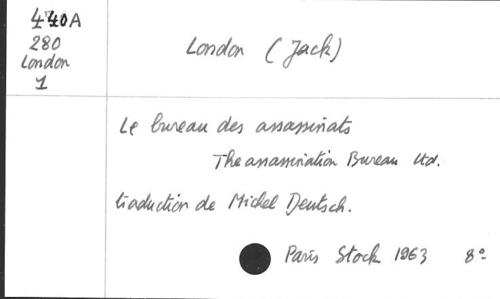 440A
280
London
1
London (Jack)
Le bureau des assassinats
The assassination Bureau Ltd.
traduction de Michel Deutsch.
Paris Stock 1963 8°